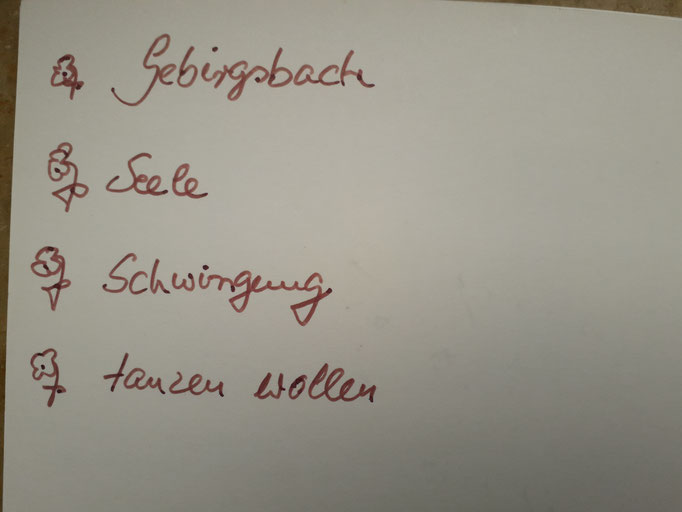 Gebirgsbach
Seele
Schwingung
tanzen wollen